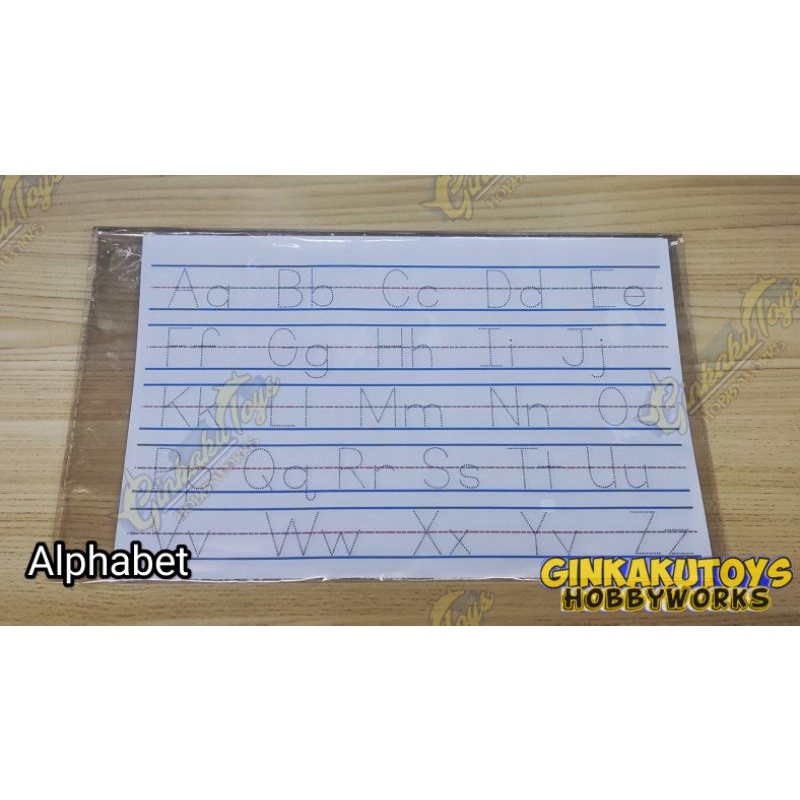 Aa Bb Cc Dd Ee
Ff Gg Hh Ii Jj
Kk Ll Mm Nn Oo
Pp Qq Rr Ss Tt Uu
Vv Ww Xx Yy Zz
Alphabet
GINKAKUTOYS
HOBBYWORKS
Ginkaku Toys
HOBBYWORKS